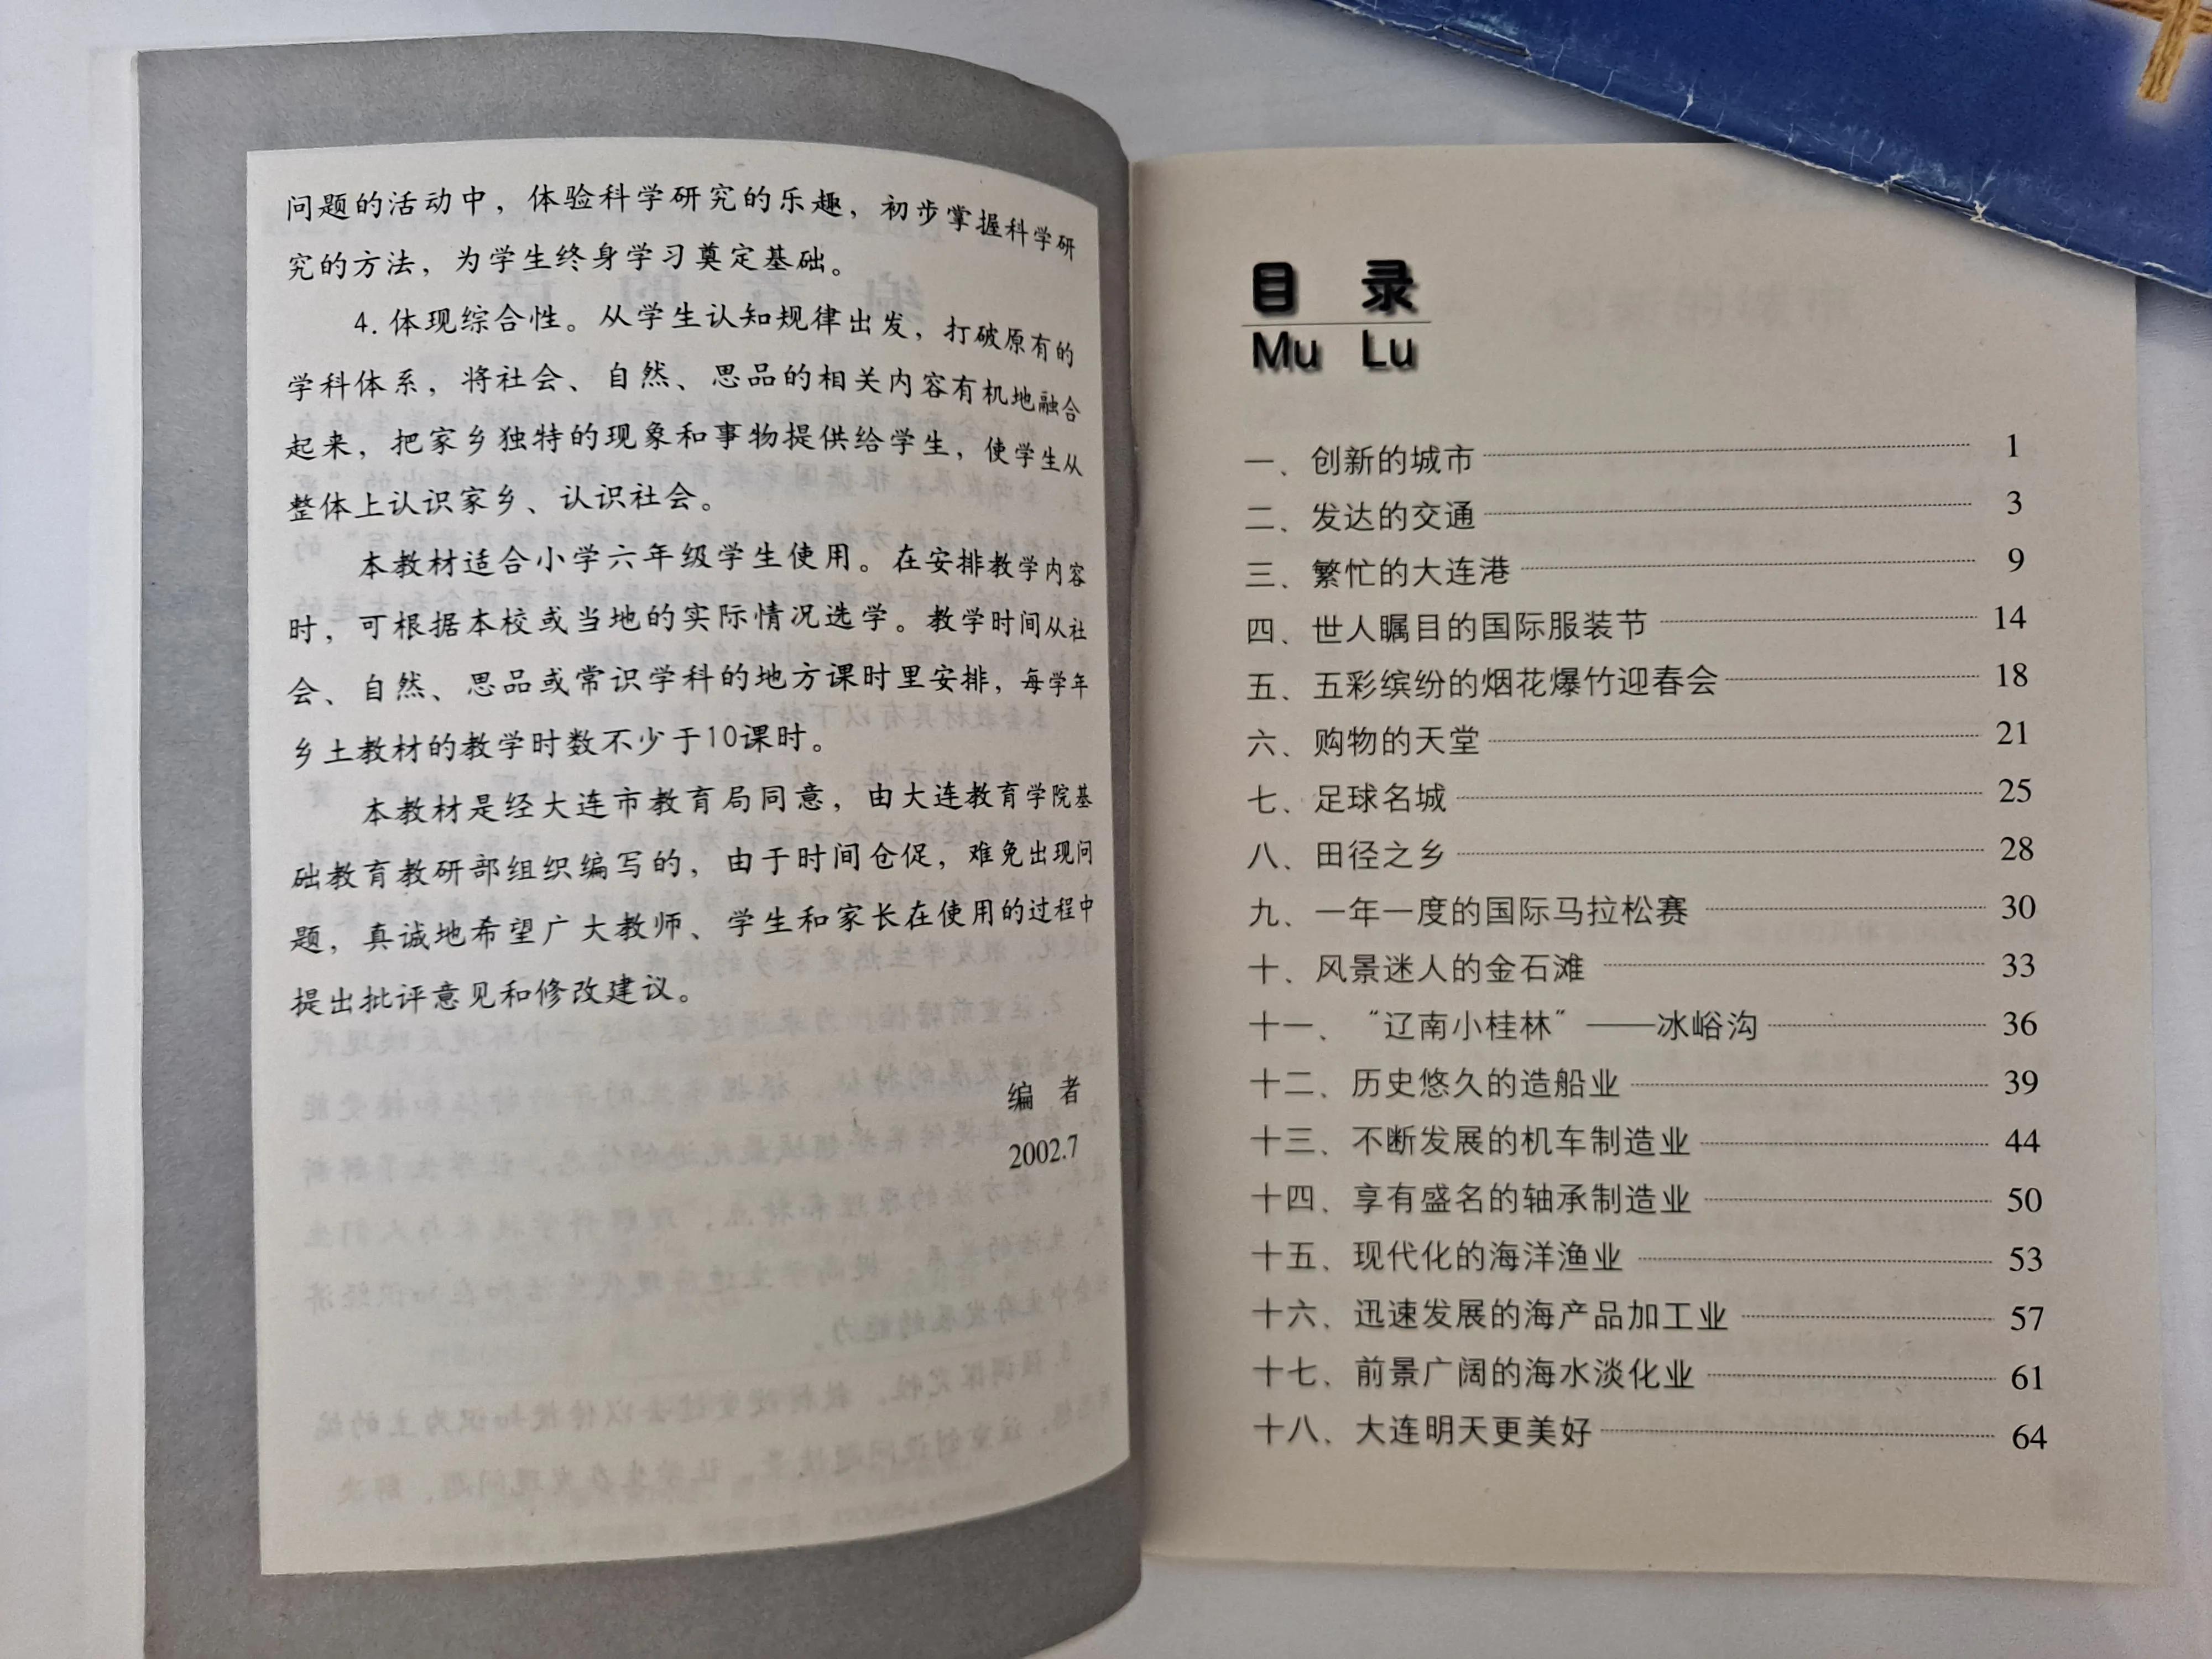 问题的活动中，体验科学研究的乐趣，初步掌握科学研
究的方法，为学生终身学习奠定基础。
4. 体现综合性。从学生认知规律出发，打破原有的
学科体系，将社会、自然、思品的相关内容有机地融合
起来，把家乡独特的现象和事物提供给学生，使学生从
整体上认识家乡、认识社会。
本教材适合小学六年级学生使用。在安排教学内容
时，可根据本校或当地的实际情况选学。教学时间从社
会、自然、思品或常识学科的地方课时里安排，每学年
乡土教材的教学时数不少于10课时。
本教材是经大连市教育局同意，由大连教育学院基
础教育教研部组织编写的，由于时间仓促，难免出现问
题，真诚地希望广大教师、学生和家长在使用的过程中
提出批评意见和修改建议。
编 者
2002.7
目 录
Mu Lu
一、创新的城市 1
二、发达的交通 3
三、繁忙的大连港 9
四、世人瞩目的国际服装节 14
五、五彩缤纷的烟花爆竹迎春会 18
六、购物的天堂 21
七、足球名城 25
八、田径之乡 28
九、一年一度的国际马拉松赛 30
十、风景迷人的金石滩 33
十一、“辽南小桂林”——冰峪沟 36
十二、历史悠久的造船业 39
十三、不断发展的机车制造业 44
十四、享有盛名的轴承制造业 50
十五、现代化的海洋渔业 53
十六、迅速发展的海产品加工业 57
十七、前景广阔的海水淡化业 61
十八、大连明天更美好 64